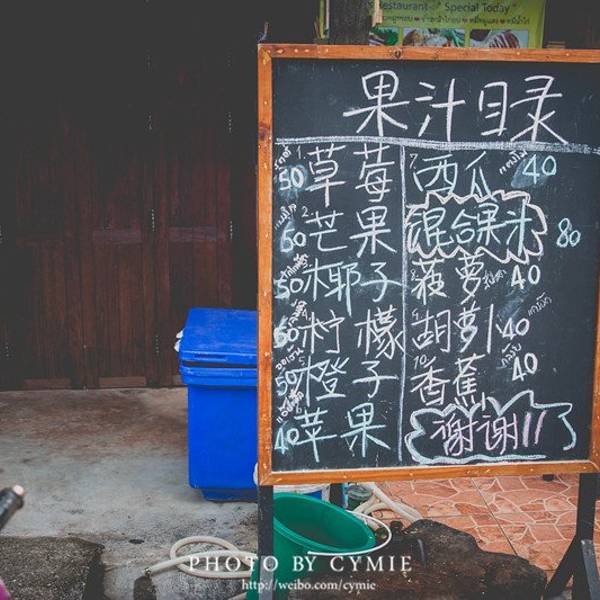 Restaurant Special Today
果汁目录
50 草莓
60 芒果
50 椰子
60 柠檬
50 橙子
40 苹果
西瓜 40
混合果汁 80
菠萝 40
胡萝卜 40
香蕉 40
谢谢!!了
PHOTO BY CYMIE
http://weibo.com/cymie